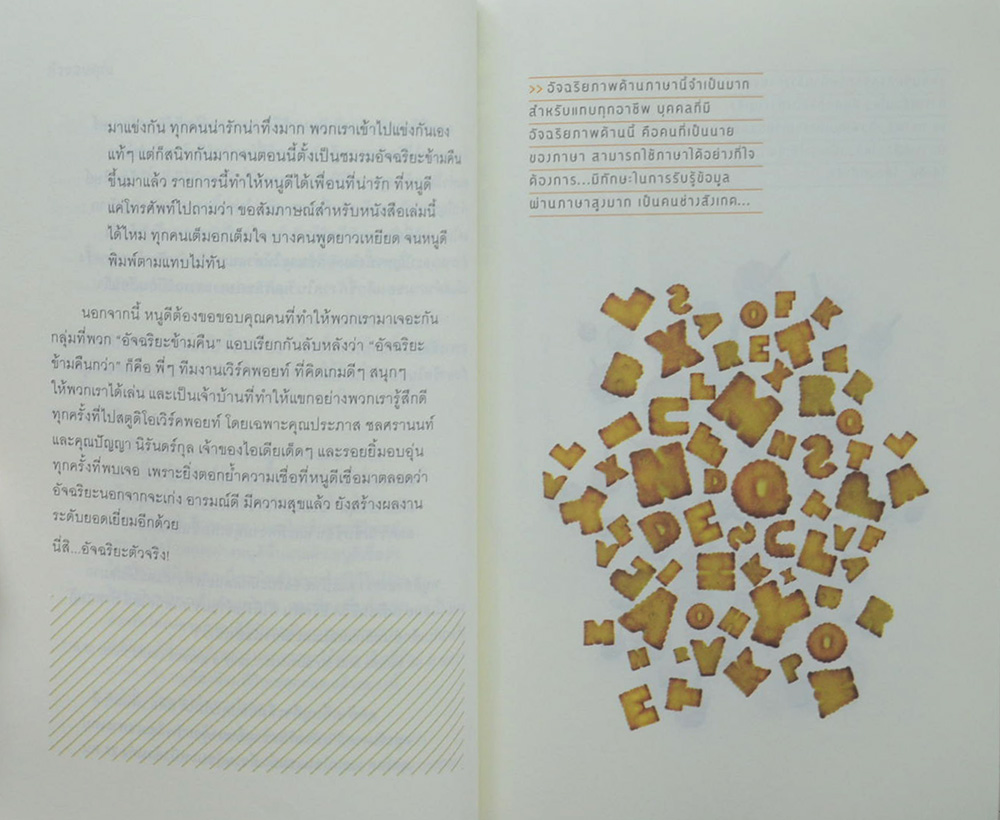 มาแข่งกัน ทุกคนน่ารักน่าทึ่งมาก พวกเราเข้าไปแข่งกันเอง
แท้ๆ แต่ก็สนิทกันมากจนตอนนี้ตั้งเป็นชมรมอัจฉริยะข้ามคืน
ขึ้นมาแล้ว รายการนี้ทำให้หนูดีได้เพื่อนที่น่ารัก ที่หนูดี
แค่โทรศัพท์ไปถามว่า ขอสัมภาษณ์สำหรับหนังสือเล่มนี้
ได้ไหม ทุกคนเต็มอกเต็มใจ บางคนพูดยาวเหยียด จนหนูดี
พิมพ์ตามแทบไม่ทัน
นอกจากนี้ หนูดีต้องขอขอบคุณคนที่ทำให้พวกเรามาเจอะกัน
กลุ่มที่พวก “อัจฉริยะข้ามคืน” แอบเรียกกันลับหลังว่า “อัจฉริยะ
ข้ามคืนกว่า” ก็คือ พี่ๆ ทีมงานเวิร์คพอยท์ ที่คิดเกมดีๆ สนุกๆ
ให้พวกเราได้เล่น และเป็นเจ้าบ้านที่ทำให้แขกอย่างพวกเรารู้สึกดี
ทุกครั้งที่ไปสตูดิโอเวิร์คพอยท์ โดยเฉพาะคุณประภาส ชลศรานนท์
และคุณปัญญา นิรันดร์กุล เจ้าของไอเดียเด็ดๆ และรอยยิ้มอบอุ่น
ทุกครั้งที่พบเจอ เพราะยิ่งตอกย้ำความเชื่อที่หนูดีเชื่อมาตลอดว่า
อัจฉริยะนอกจากจะเก่ง อารมณ์ดี มีความสุขแล้ว ยังสร้างผลงาน
ระดับยอดเยี่ยมอีกด้วย
นี่สิ...อัจฉริยะตัวจริง!
>> อัจฉริยภาพด้านภาษานี้จำเป็นมาก
สำหรับแทบทุกอาชีพ บุคคลที่มี
อัจฉริยภาพด้านนี้ คือคนที่เป็นนาย
ของภาษา สามารถใช้ภาษาได้อย่างที่ใจ
ต้องการ...มีทักษะในการรับรู้ข้อมูล
ผ่านภาษาสูงมาก เป็นคนช่างสังเกต...